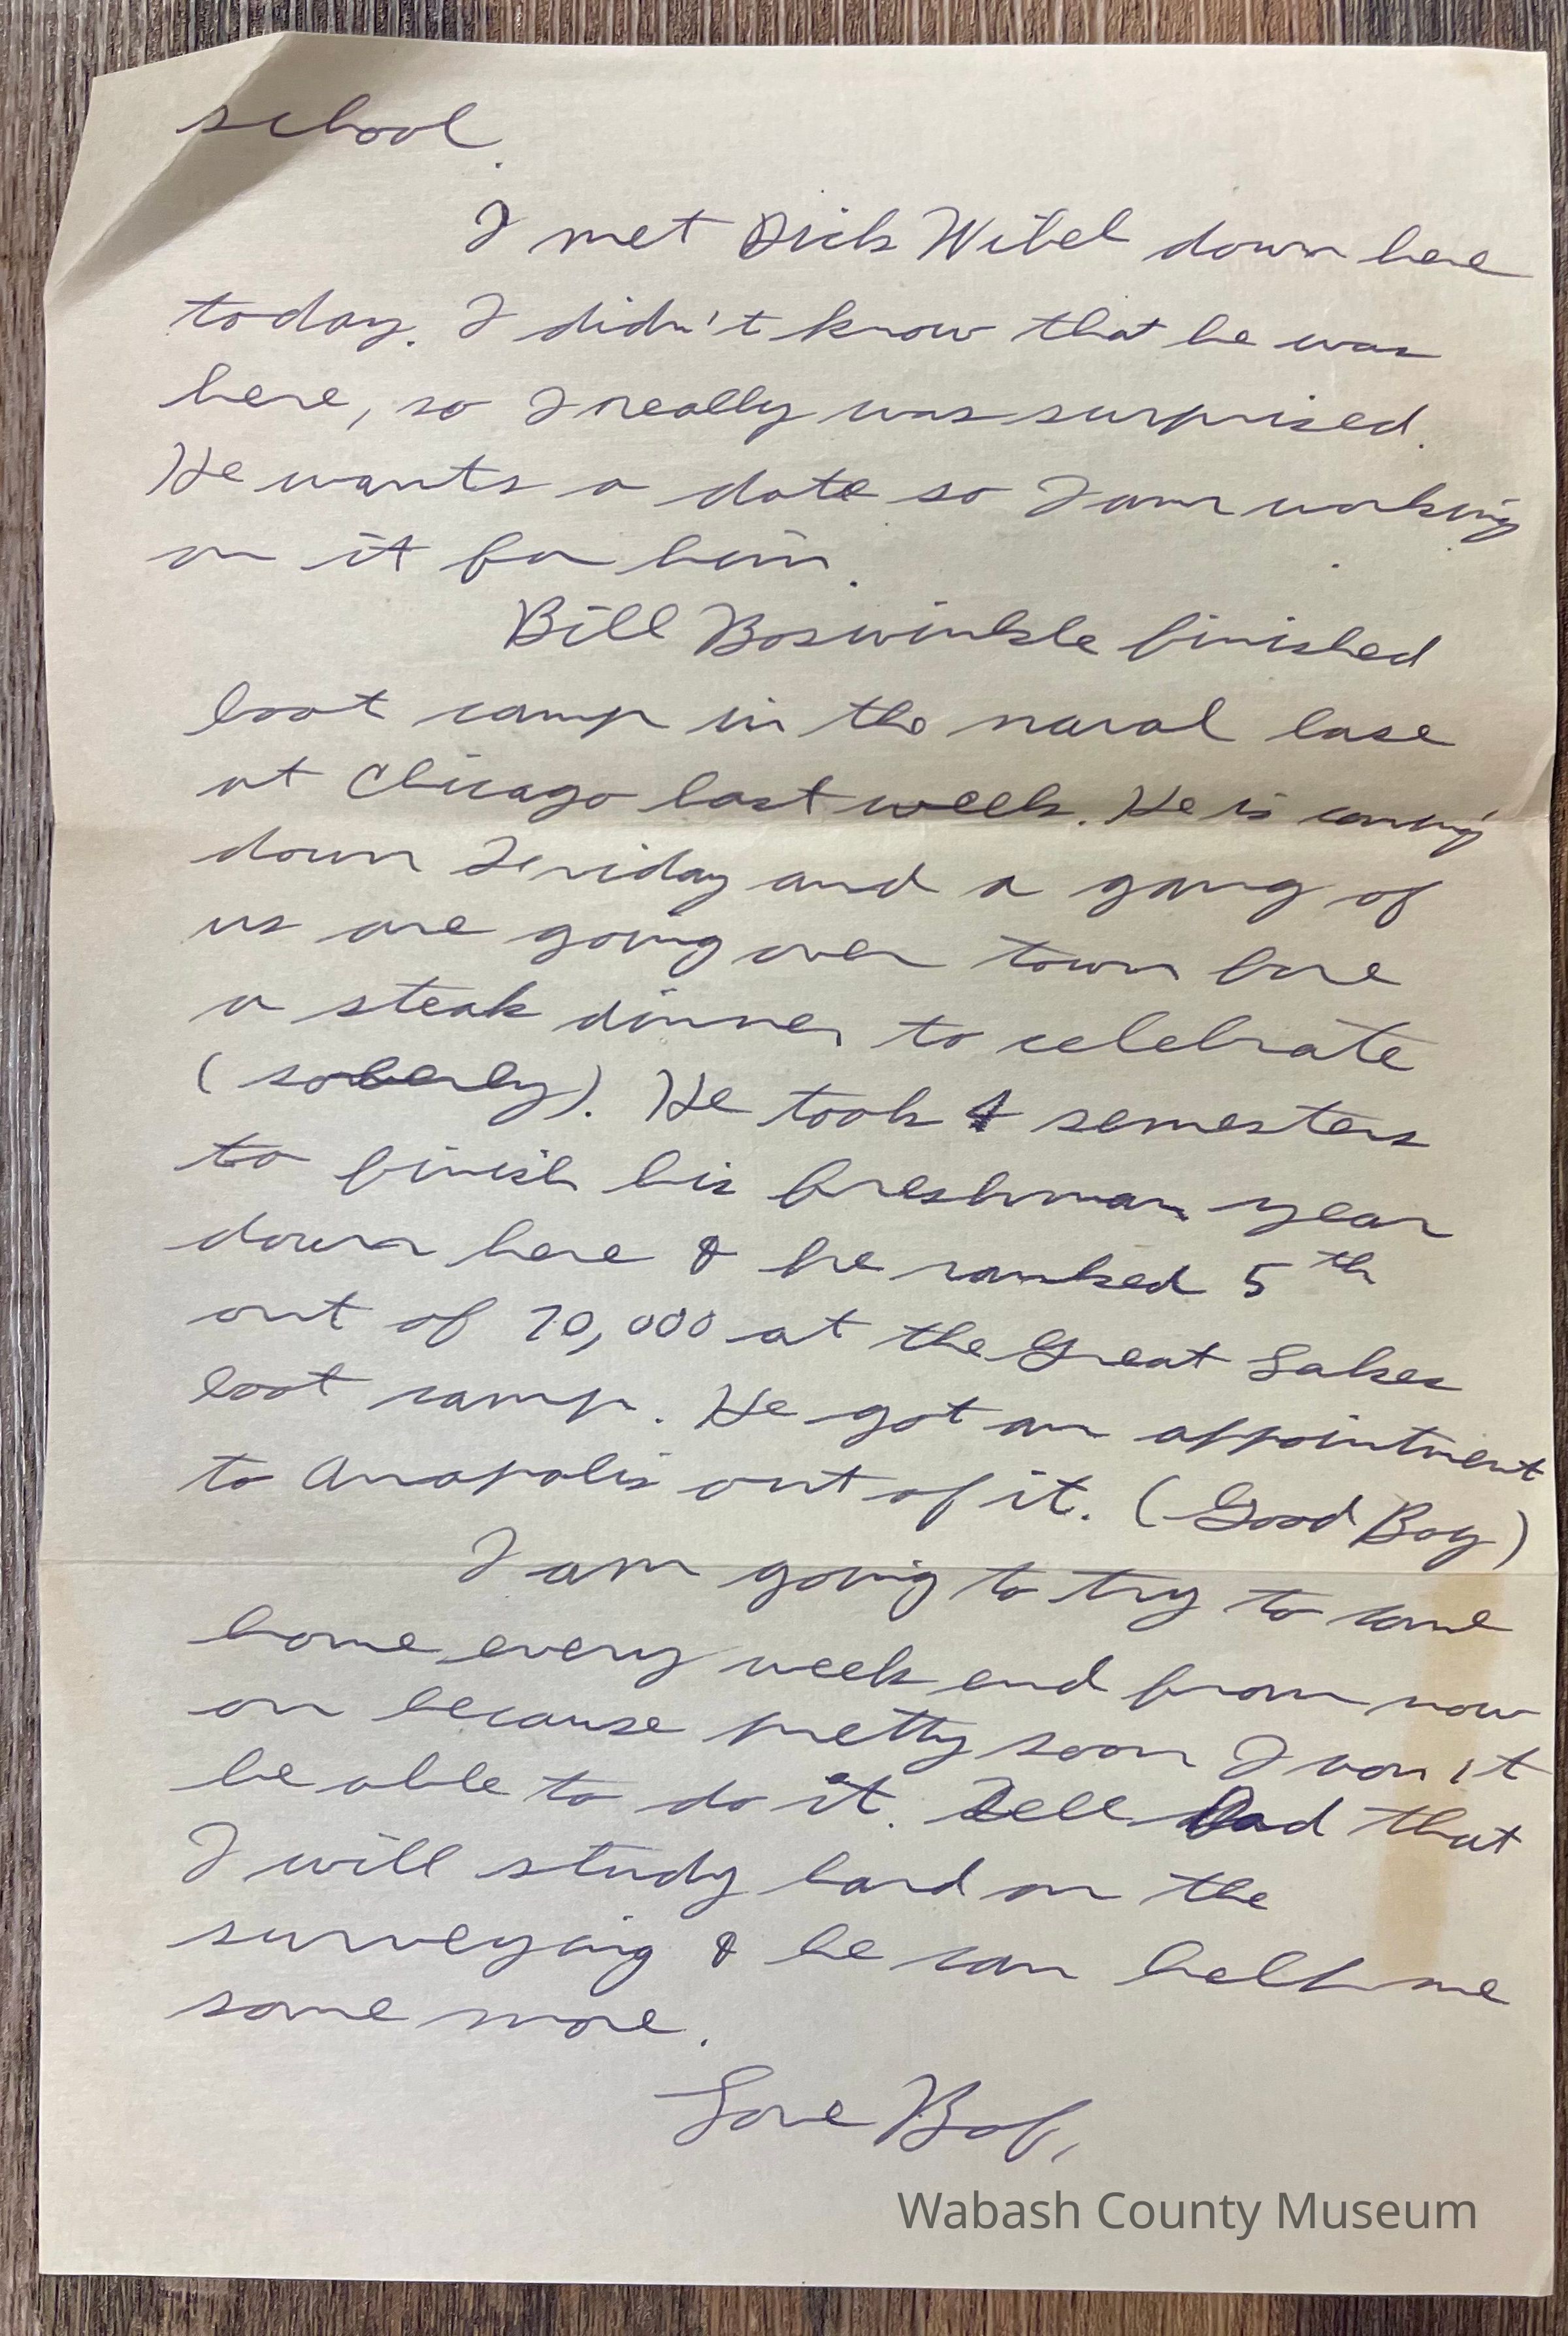 school.
I met Dick Wibel down here
today. I didn't know that he was
here, so I really was surprised.
He wants a date so I am working
on it for him.
Bill Boswinkle finished
boot camp in the naval base
at Chicago last week. He is coming
down Friday and a gang of
us are going over town fore
a steak dinner to celebrate
(soberly). He took 4 semesters
to finish his freshman year
down here & he ranked 5th
out of 20,000 at the Great Lakes
boot camp. He got an appointment
to Anapolis out of it. (Good Boy)
I am going to try to come
home every week end from now
on because pretty soon I won't
be able to do it. Tell Dad that
I will study hard on the
surveying & he can help me
some more.
Love Bob,
Wabash County Museum